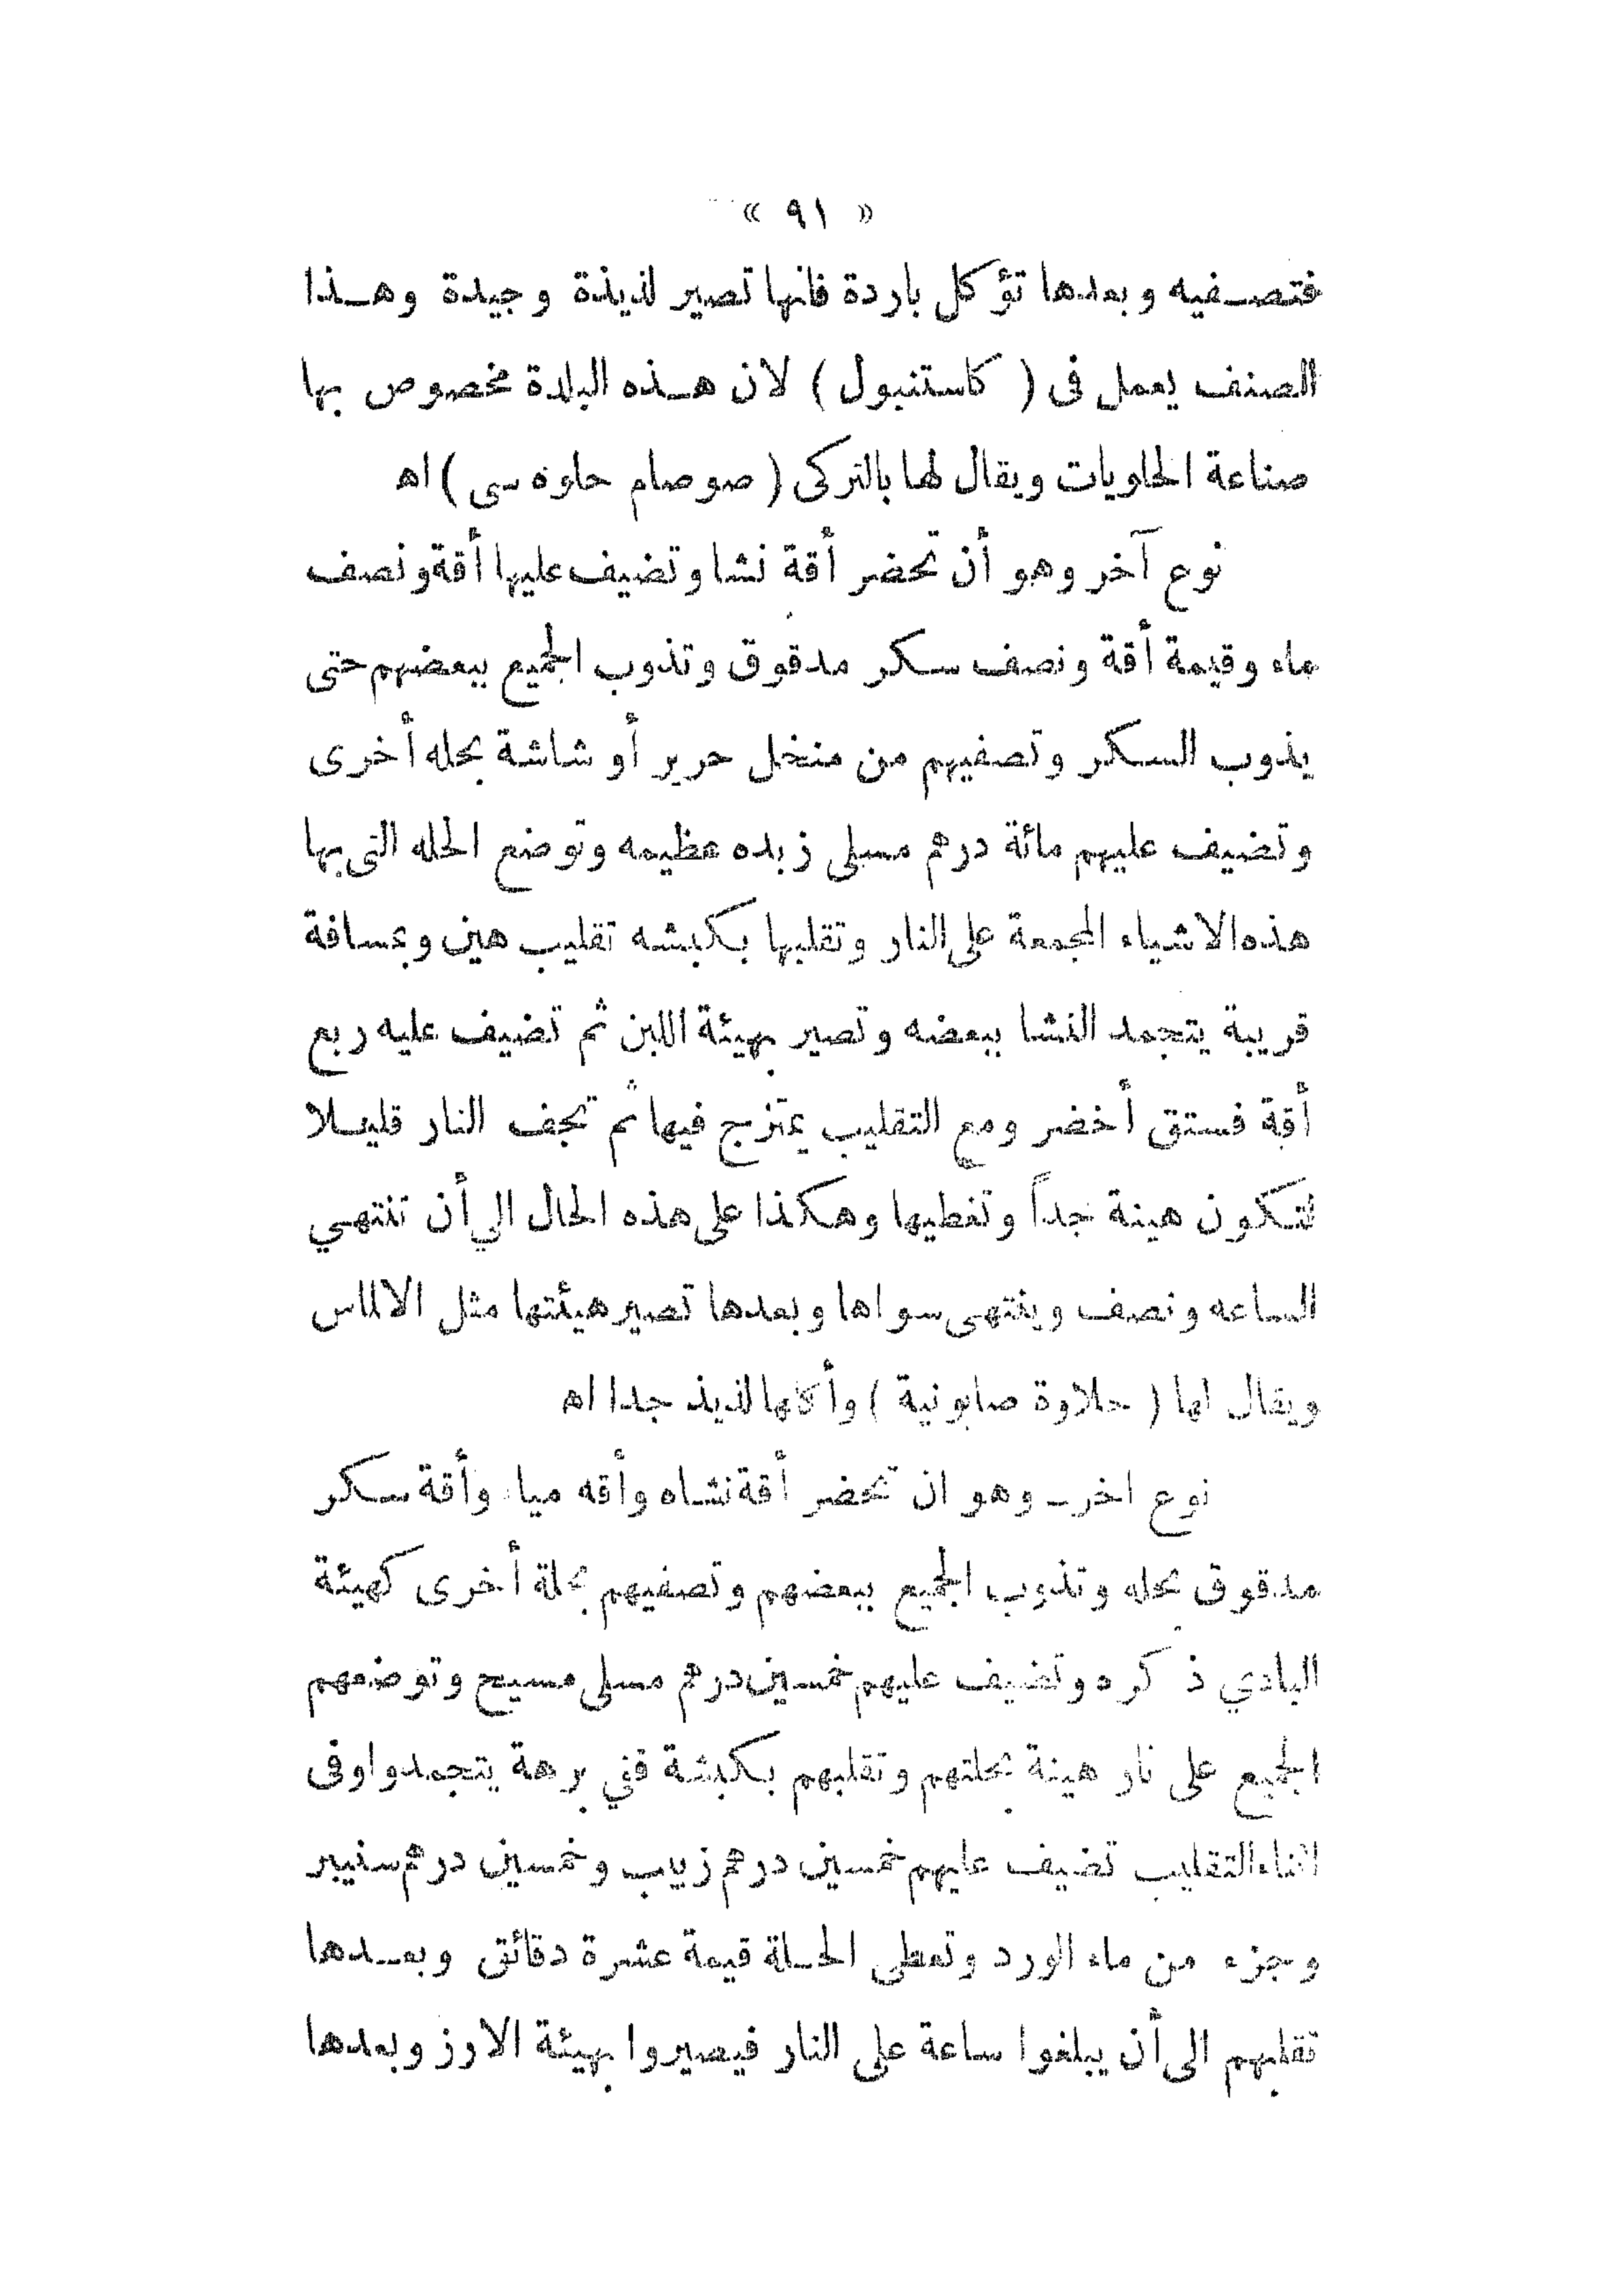 « ٩١ »
فتصفيه وبعدها تؤكل باردة فانها تصير لذيذة وجيدة وهذا
الصنف يعمل فى ( كاستنبول ) لان هذه البلدة مخصوص بها
صناعة الحلويات ويقال لها بالتركى ( صوصام حلوه سى ) اه
نوع آخر وهو أن تحضر أقة نشا وتضيف عليها أقة ونصف
ماء وقيمة أقة ونصف سكر مدقوق وتذوب الجميع ببعضهم حتى
يذوب السكر وتصفيهم من منخل حرير أو شاشة بحله أخرى
وتضيف عليهم مائة درهم مسلى زبده عظيمه وتوضع الحله التى بها
هذه الاشياء المجمعة على النار وتقلبها بكبشه تقليب هين وبمسافة
قريبة يتجمد النشا ببعضه وتصير بهيئة اللبن ثم تضيف عليه ربع
أقة فستق أخضر ومع التقليب يمتزج فيها ثم تجفف النار قليلا
لتكون هينة جداً وتغطيها وهكذا على هذه الحال الي أن تنتهي
الساعه ونصف وينتهى سواها وبعدها تصير هيئتها مثل الالماس
ويقال لها ( حلاوة صابونية ) وأكلها لذيذ جدا اه
نوع اخر ـ وهو ان تحضر أقة نشاه وأقه مياء وأقة سكر
مدقوق بحله وتذوب الجميع ببعضهم وتصفيهم بحلة أخرى كهيئة
البادي ذكره وتضيف عليهم خمسين درهم مسلى مسيح وتوضعهم
الجميع على نار هينة بحلتهم وتقلبهم بكبشة ففي برهة يتجمدوا وفى
اثناء التقليب تضيف عليهم خمسين درهم زبيب وخمسين درهم سنيبر
وجزء من ماء الورد وتغطى الحلة قيمة عشرة دقائق وبعدها
تقلبهم الى أن يبلغوا ساعة على النار فيصيروا بهيئة الارز وبعدها